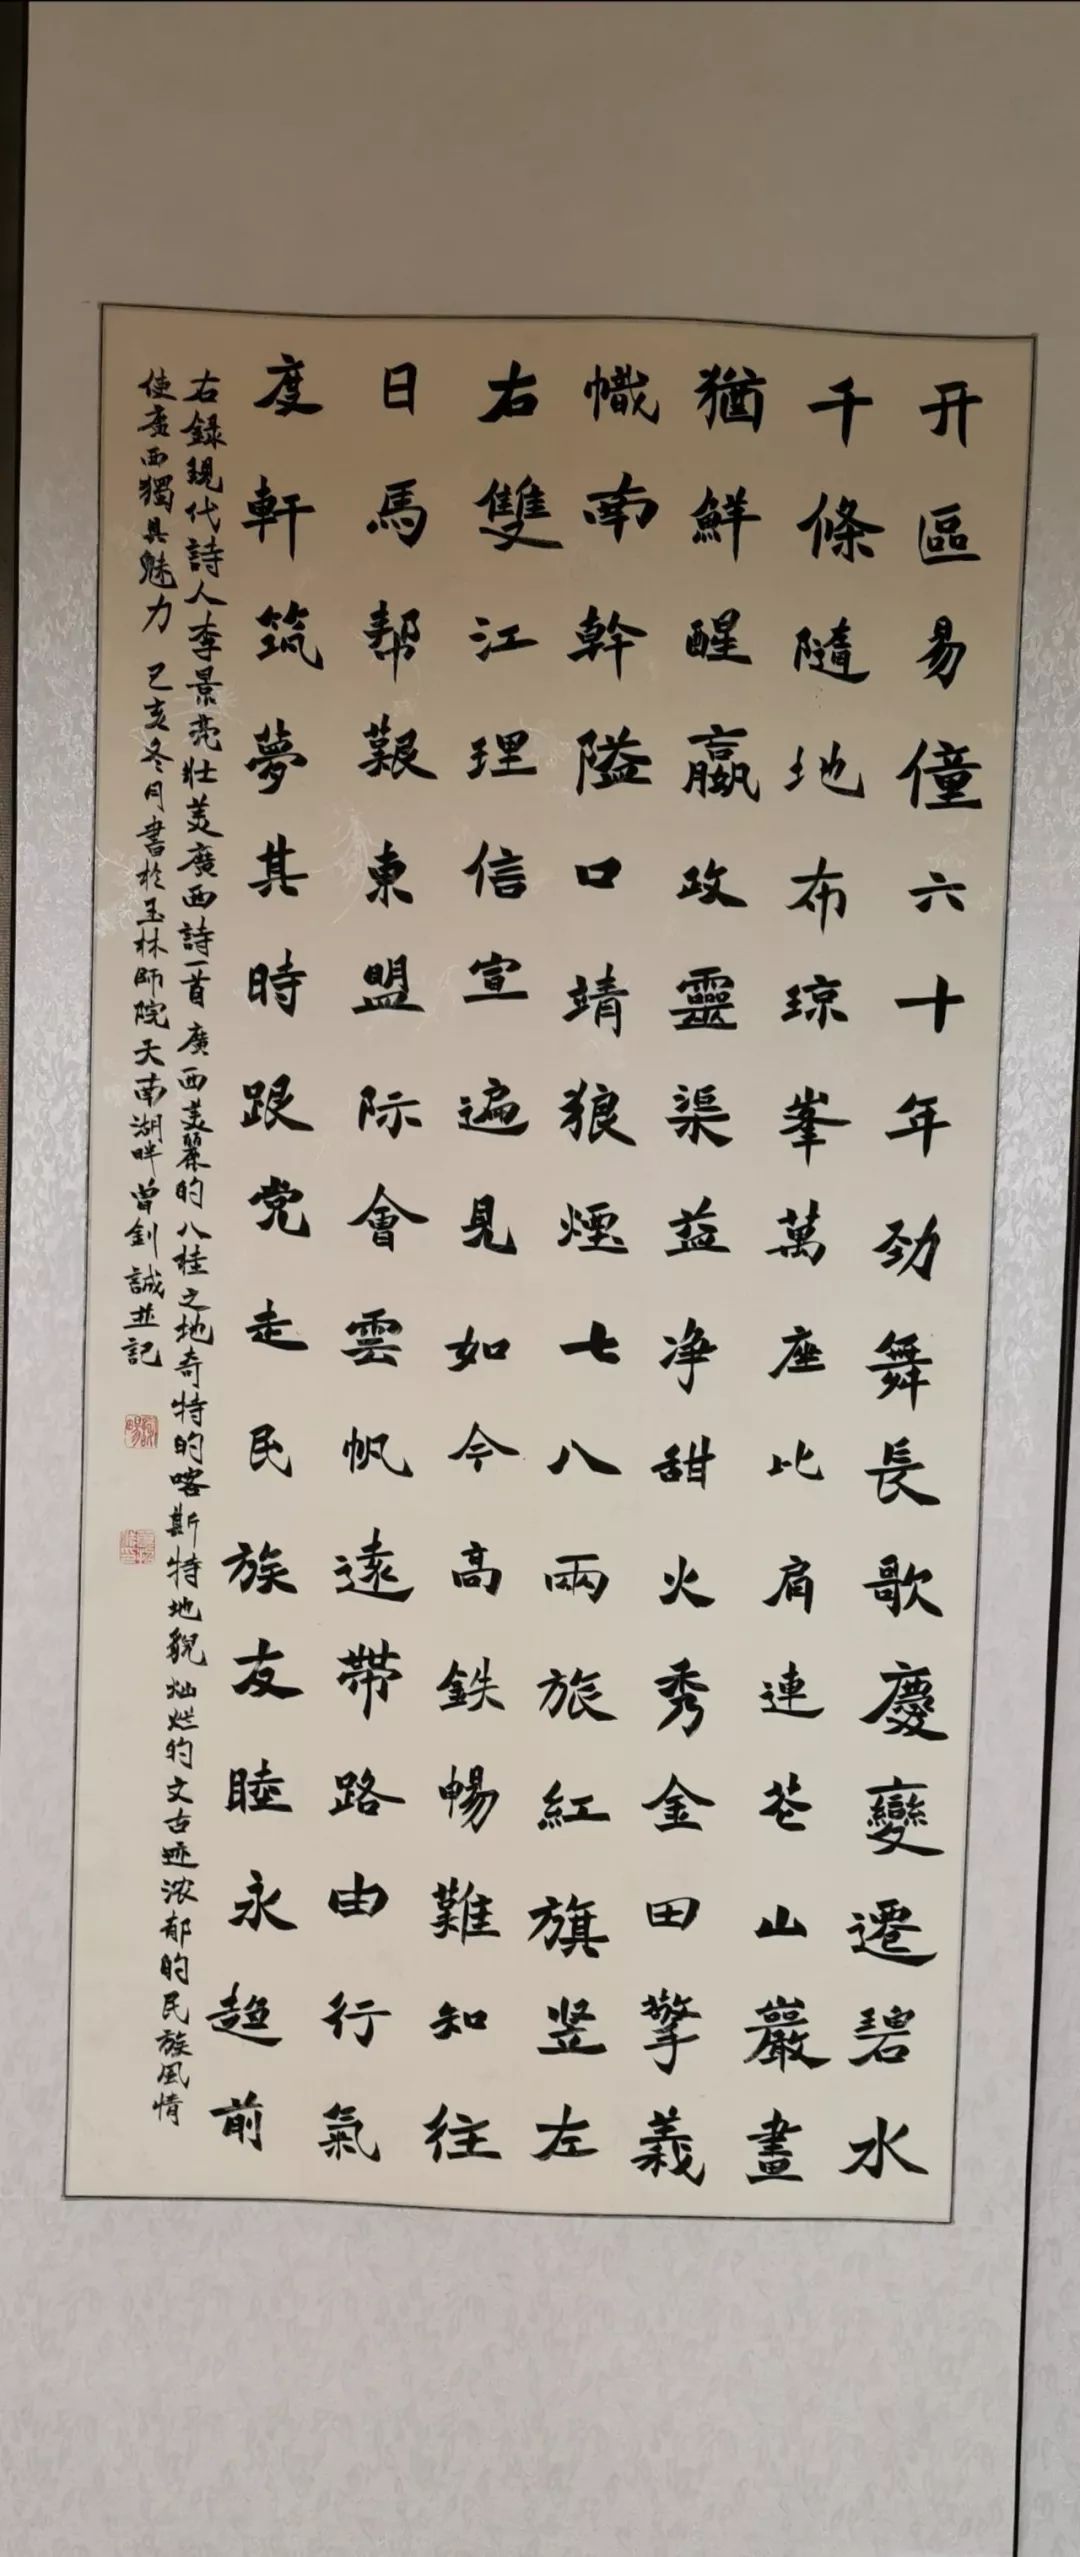 开區易僮六十年勁舞長歌慶變遷碧水
千條隨地布琼峯萬座比肩連芒山巖畫
猶鮮醒嬴政靈渠益净甜火秀金田擎義
幟南幹隘口靖狼煙七八兩旅紅旗竖左
右雙江理信宣遍見如今高鉄暢難知往
日馬帮艱東盟际會雲帆遠帶路由行氣
度軒筑夢其時跟党走民族友睦永趋前
右録現代詩人李景亮壮美廣西詩一首廣西美麗的八桂之地奇特的喀斯特地貌灿烂的文古迹浓郁的民族風情
使廣西獨具魅力 己亥冬月書於玉林師院天南湖畔曾釗誠並記